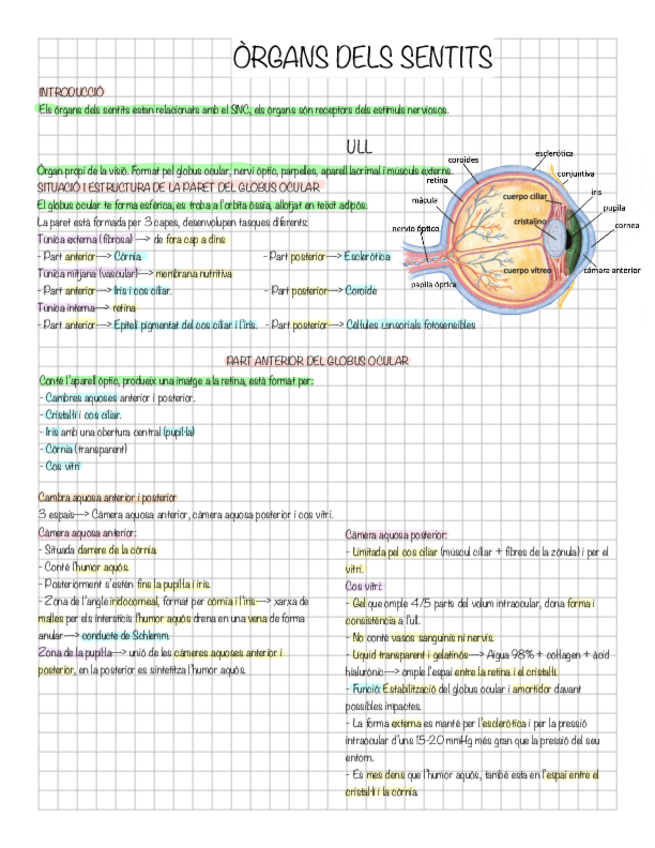 ÒRGANS DELS SENTITS
INTRODUCCIÓ
Els òrgans dels sentits estan relacionats amb el SNC, els òrgans són receptors dels estímuls nerviosos.
ULL
Òrgan propi de la visió. Format pel globus ocular, nervi òptic, parpelles, aparell lacrimal i músculs externs.
SITUACIÓ I ESTRUCTURA DE LA PARET DEL GLOBUS OCULAR
El globus ocular te forma esfèrica, es troba a l'òrbita òssia, allotjat en teixit adipós.
La paret està formada per 3 capes, desenvolupen tasques diferents:
Túnica externa (fibrosa) —> de fora cap a dins
- Part anterior—> Còrnia
- Part posterior—> Escleròtica
Túnica mitjana (vascular)—> membrana nutritiva
- Part anterior—> Iris i cos ciliar.
- Part posterior—> Coroide
Túnica interna—> retina
- Part anterior—> Epiteli pigmentat del cos ciliar i l'iris.
- Part posterior—> Cèl·lules sensorials fotosensibles
esclerótica
coroides
conjuntiva
retina
iris
cuerpo ciliar
mácula
pupila
cristalino
cornea
nervio óptico
cuerpo vitreo
cámara anterior
papila óptica
PART ANTERIOR DEL GLOBUS OCULAR
Conté l'aparell òptic, produeix una imatge a la retina, està format per:
- Cambres aquoses anterior i posterior.
- Cristal·lí i cos ciliar.
- Iris amb una obertura central (pupil·la)
- Còrnia (transparent)
- Cos vitri
Cambra aquosa anterior i posterior
3 espais—> Càmera aquosa anterior, càmera aquosa posterior i cos vitri.
Càmera aquosa anterior:
- Situada darrere de la còrnia.
- Conté l'humor aquós.
- Posteriorment s'estén fins la pupil·la i iris.
- Zona de l'angle iridocorneal, format per còrnia i l'iris—> xarxa de
malles per els intersticis l'humor aquós drena en una vena de forma
anular—> conducte de Schlemm.
Zona de la pupil·la—> unió de les càmeres aquoses anterior i
posterior, en la posterior es sintetitza l'humor aquós.
Càmera aquosa posterior:
- Limitada pel cos ciliar (múscul ciliar + fibres de la zònula) i per el
vitri.
Cos vitri:
- Gel que omple 4/5 parts del volum intraocular, dona forma i
consistència a l'ull.
- No conté vasos sanguinis ni nervis.
- Líquid transparent i gelatinós—> Aigua 98% + col·lagen + àcid
hialurònic—> omple l'espai entre la retina i el cristal·lí.
- Funció: Estabilització del globus ocular i amortidor davant
possibles impactes.
- La forma externa es manté per l'escleròtica i per la pressió
intraocular d'uns 15-20 mmHg més gran que la pressió del seu
entorn.
- Es mes dens que l'humor aquós, també esta en l'espai entre el
cristal·lí i la còrnia.